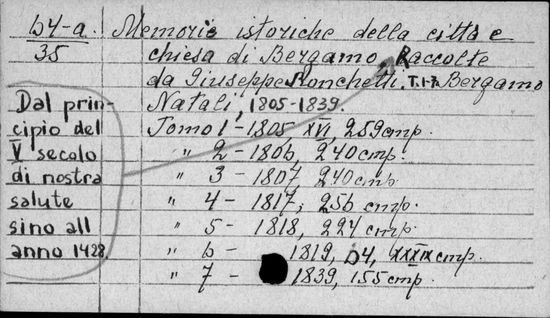 64-а.
35
Memorie istoriche della città e
chiesa di Bergamo Raccolte
da Giuseppe Ronchetti. T. 1-7. Bergamo
Natali, 1805-1839.
Tomo 1 - 1805, XVI, 259 стр.
" 2 - 1806, 240 стр.
" 3 - 1807, 240 стр.
" 4 - 1817, 256 стр.
" 5 - 1818, 224 стр.
" 6 - 1819, 64, XXXIX стр.
" 7 - 1839, 155 стр.
Dal prin-
cipio del
V secolo
di nostra
salute
sino all
anno 1428.